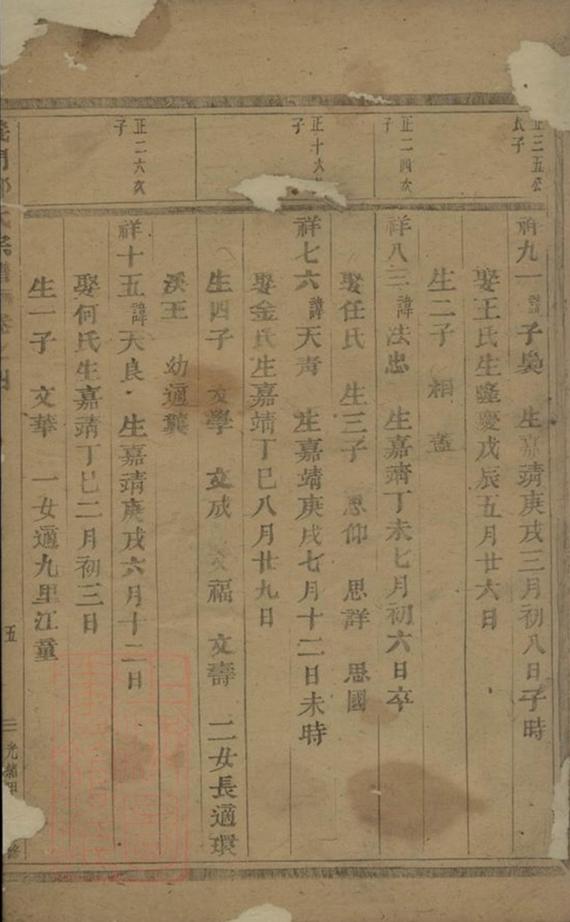 正三五公
長子
祥九一 諱子㬰 生嘉靖庚戌三月初八日子時
娶王氏生隆慶戊辰五月廿六日
生二子 相 盖
正二四次
子
祥八三 諱法忠 生嘉靖丁未七月初六日卒
娶任氏 生三子 思仰 思詳 思國
正十六
子
祥七六 諱天青 生嘉靖庚戌七月十二日未時
娶金氏生嘉靖丁巳八月廿九日
生四子 文學 文成 文福 文壽 二女長適環
溪王 幼適龔
正二六次
子
祥十五 諱天良 生嘉靖庚戌六月十二日
娶何氏生嘉靖丁巳二月初三日
生一子 文華 一女適九里江童
五
光緒